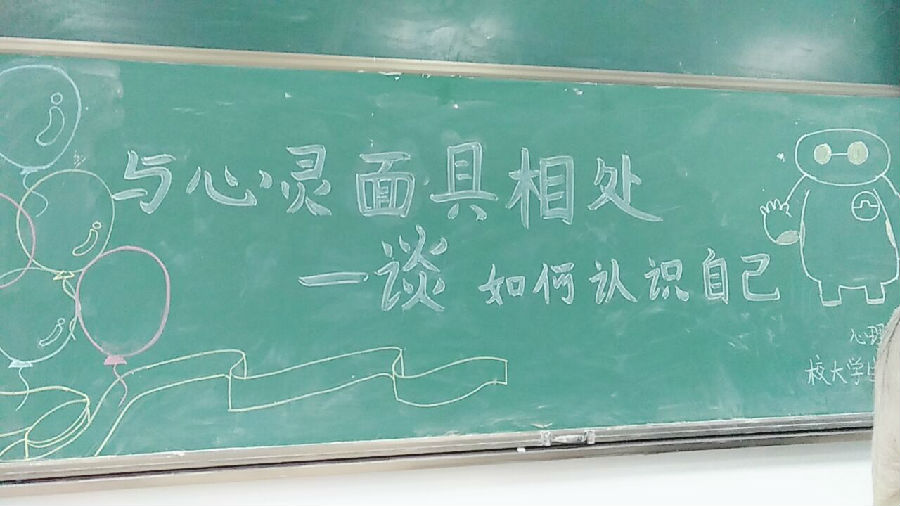 与心灵面具相处
一谈 如何认识自己
心理
校大学生